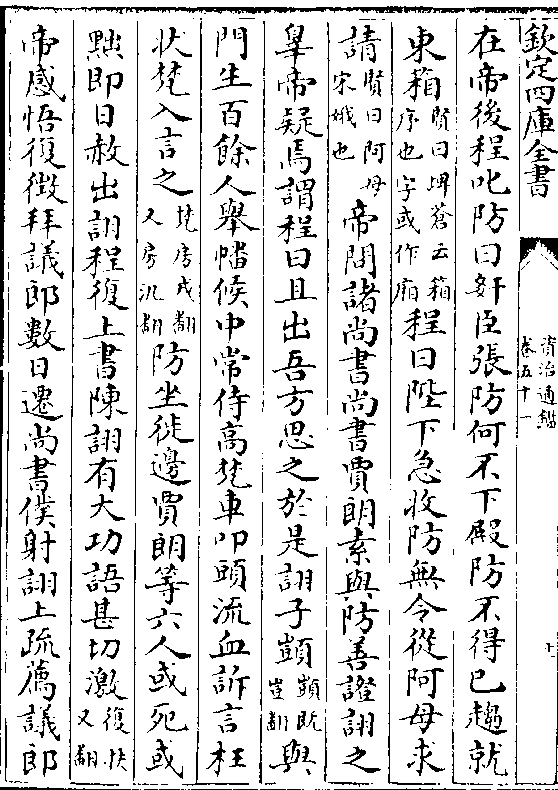 欽定四庫全書
資治通鑑
卷五十一
在帝後程叱防曰奸臣張防何不下殿防不得已趨就
東箱賢曰埤蒼云箱序也字或作廂程曰陛下急收防無令從阿母求
請賢曰阿母宋娥也帝問諸尚書尚書賈朗素與防善證詡之
辠帝疑焉謂程曰且出吾方思之於是詡子顗顗既豈翻與
門生百餘人舉幡候中常侍高梵車叩頭流血訴言枉
狀梵入言之梵房戎翻又房汎翻防坐徙邊賈朗等六人或死或
黜即日赦出詡程復上書陳詡有大功語甚切激復扶又翻
帝感悟復徵拜議郎數日遷尚書僕射詡上疏薦議郎